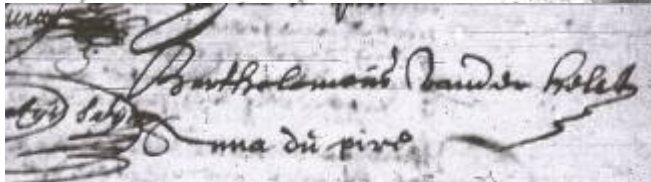 Bartholomeus vander helst
Anna du pire